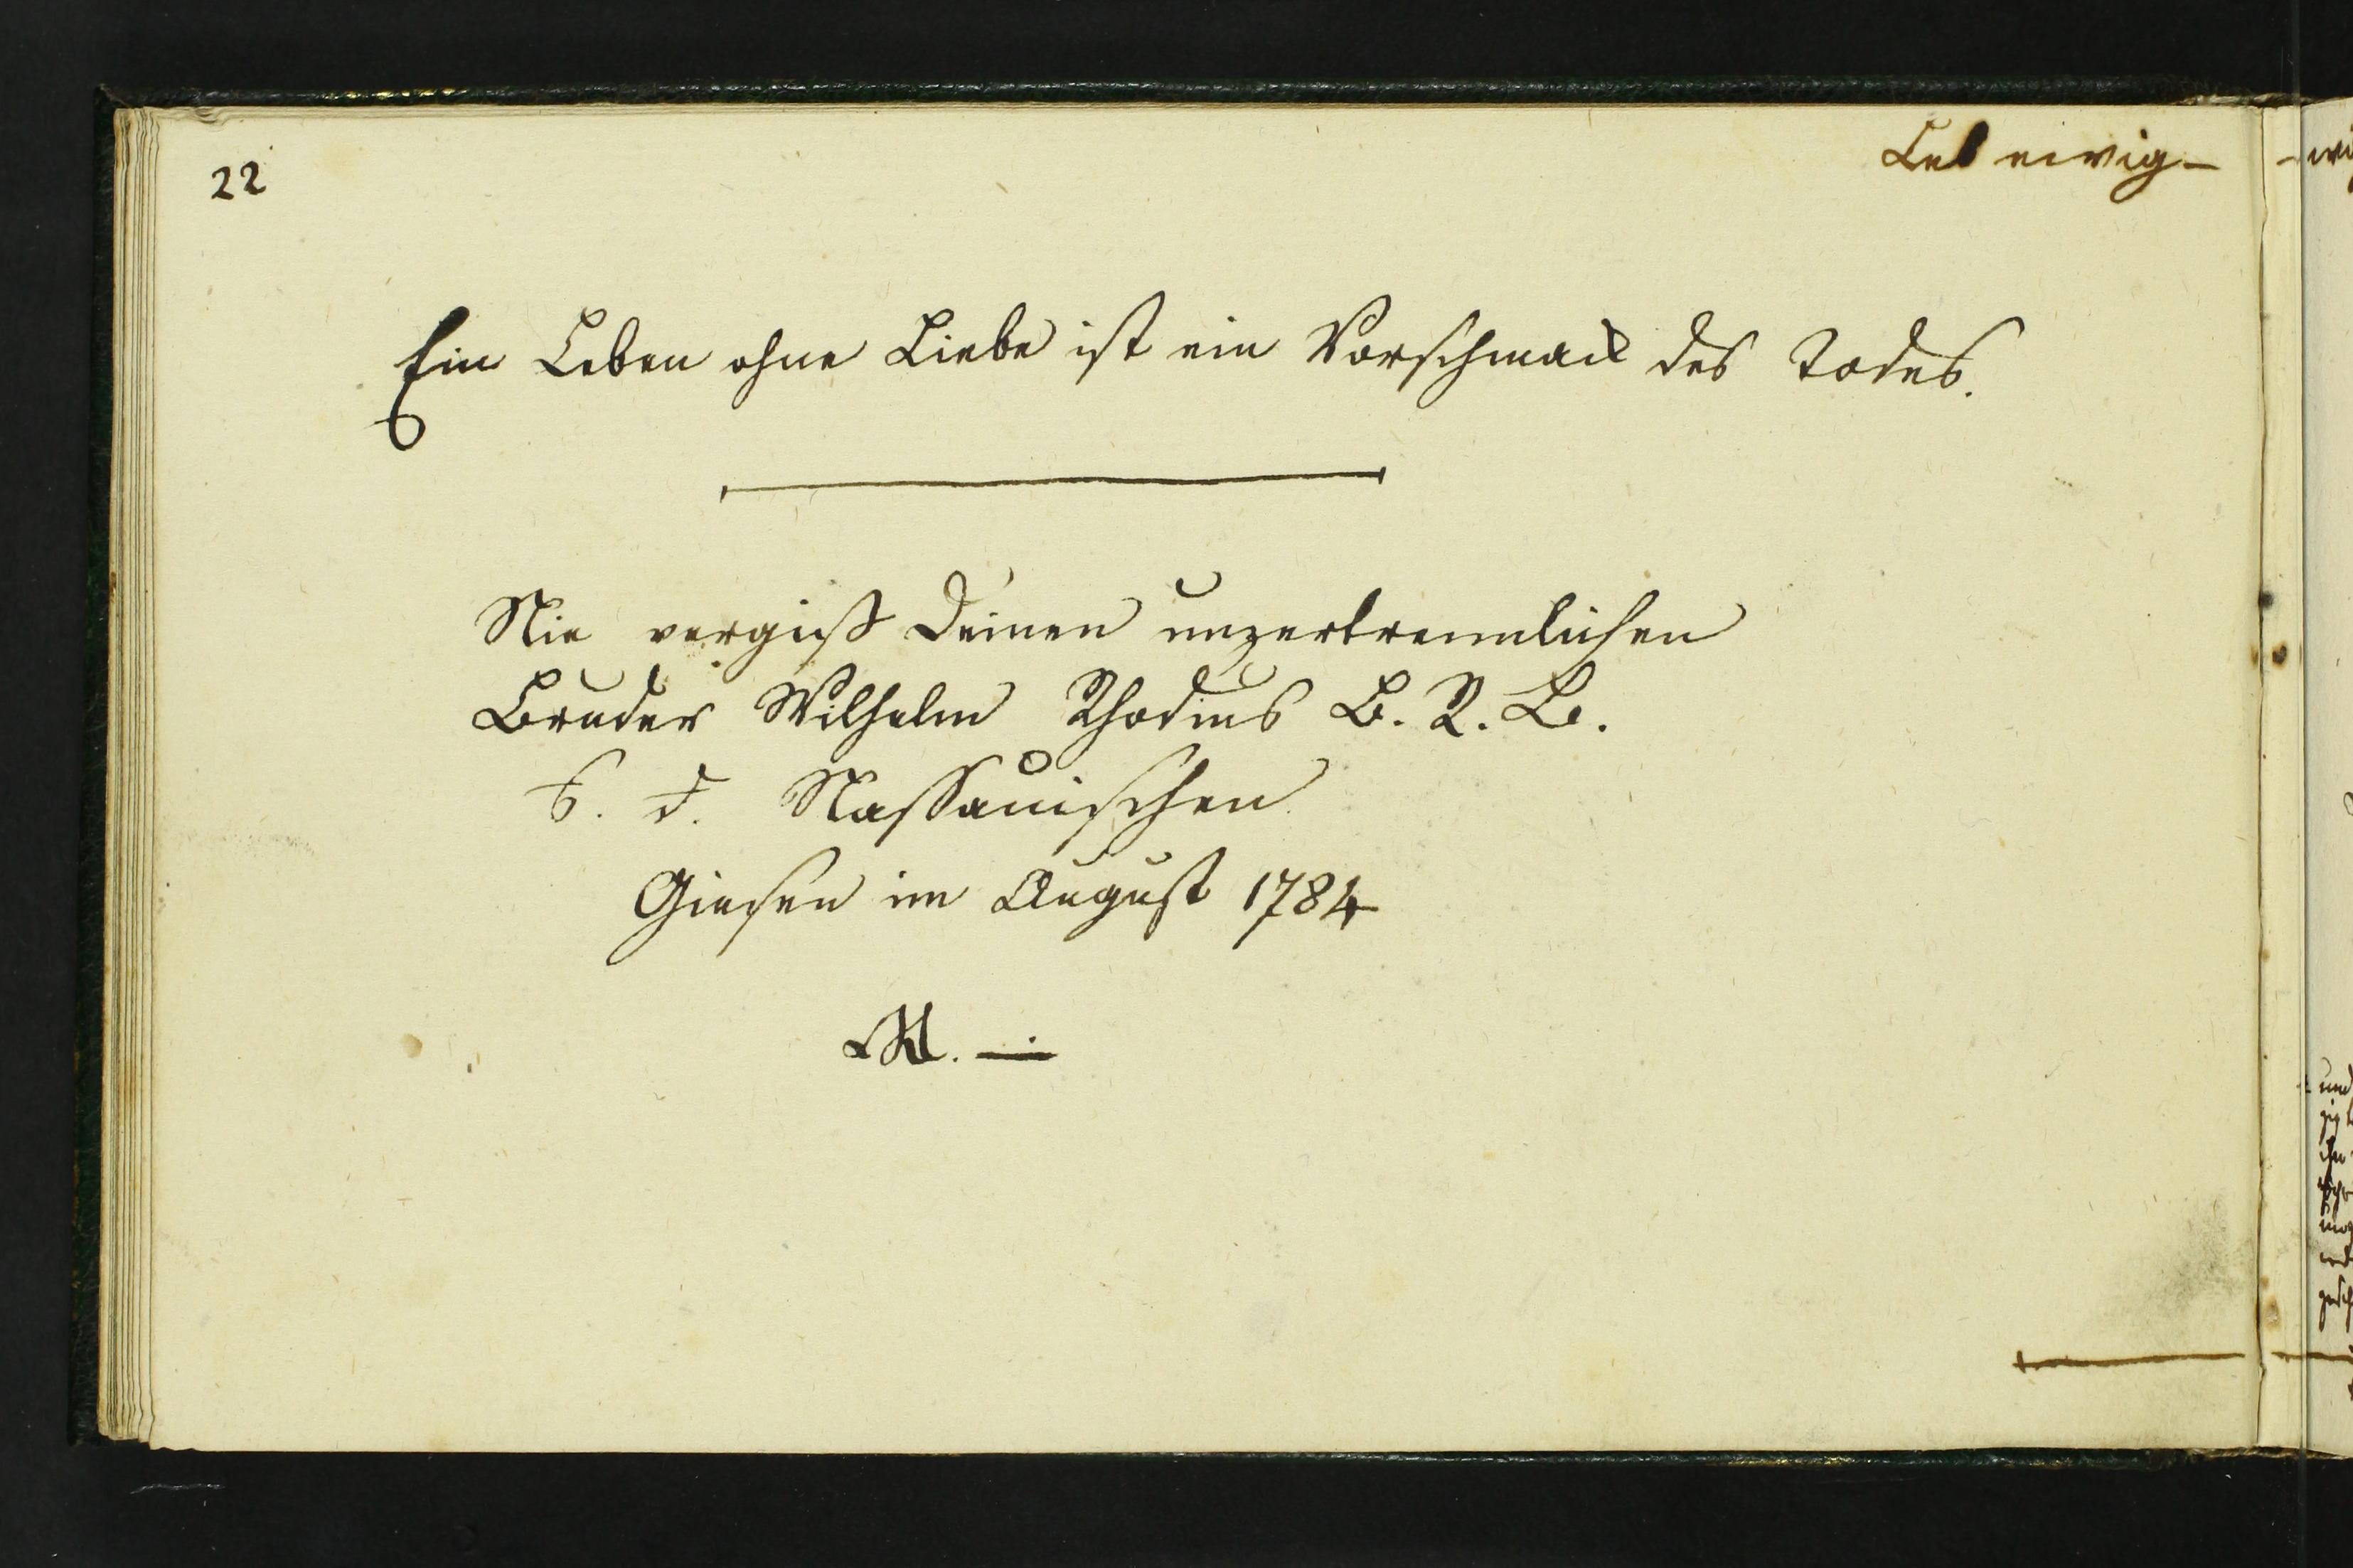 22
Leb ewig-
Ein Leben ohne Liebe ist ein Vorschmack des Todes.
Nie vergiß Deinen unzertrennlichen
Bruder Wilhelm Rhodius B. R. B.
d. Nassauischen
Giesen im August 1784